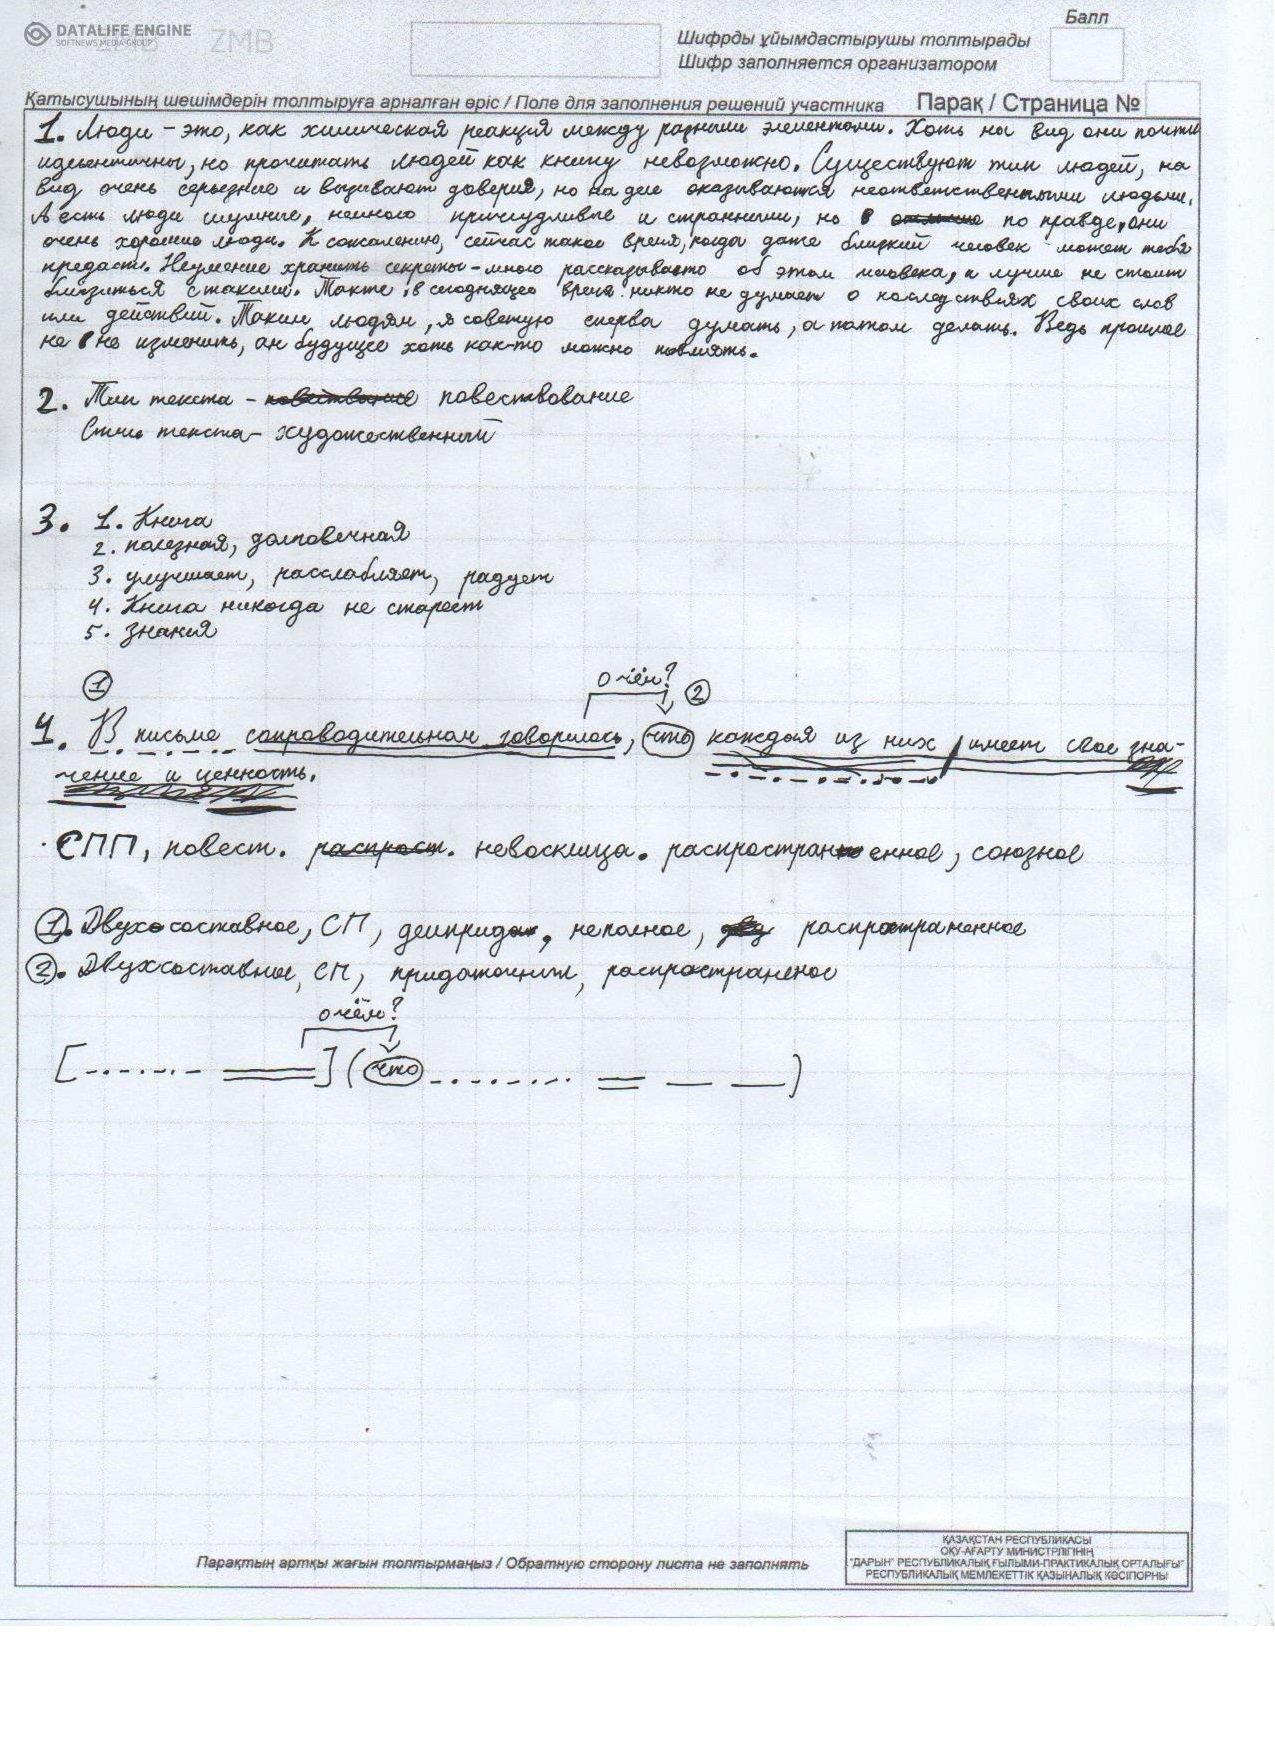 DATALIFE ENGINE
SOFTNEWS MEDIA GROUP
ZMB
Балл
Шифрды ұйымдастырушы толтырады
Шифр заполняется организатором
Қатысушының шешімдерін толтыруға арналған өріс / Поле для заполнения решений участника Парақ / Страница №
1. Люди - это, как химическая реакция между разными элементами. Хоть на вид они почти
идеентичны, но прочитать людей как книгу невозможно. Существуют тип людей, на
вид очень серьезние и вызивают доверия, но на деле оказываются неответственными людьми.
А есть люди шумные, немного причудливые и странными, но в по правде, они
очень хорошие люди. К сожалению, сейчас такое время, когда даже близкий человек может тебя
предасть. Неумение хранить секреты - много рассказывает об этом человека, и лучше не стоит
близиться с такими. Также, в сегоднящее время никто не думает о последствиях своих слов
или действий. Таким людям, я советую сперва думать, а потом делать. Ведь прошлое
не изменить, а будущее хоть как-то можно повлиять.
2. Тип текста - повествование
Стиль текста - художественный
3. 1. Книга
2. полезная, долговечная
3. улучшает, расслабляет, радует
4. Книга никогда не стареет
5. знания
1 о чём? 2
4. В письме сопроводительном говорилось, что каждая из них имеет свое зна-
чение и ценность.
СПП, повест. распрост. невосклица. распространенное, союзное
1. Двухосоставное, СП, неполное, распространенное
2. Двухсоставное, СП, придаточный, распространеное
о чём?
[ ] (что )
Парақтың артқы жағын толтырмаңыз / Обратную сторону листа не заполнять
ҚАЗАҚСТАН РЕСПУБЛИКАСЫ
ОҚУ-АҒАРТУ МИНИСТРЛІГІНІҢ
"ДАРЫН" РЕСПУБЛИКАЛЫҚ ҒЫЛЫМИ-ПРАКТИКАЛЫҚ ОРТАЛЫҒЫ"
РЕСПУБЛИКАЛЫҚ МЕМЛЕКЕТТІК ҚАЗЫНАЛЫҚ КӘСІПОРНЫ